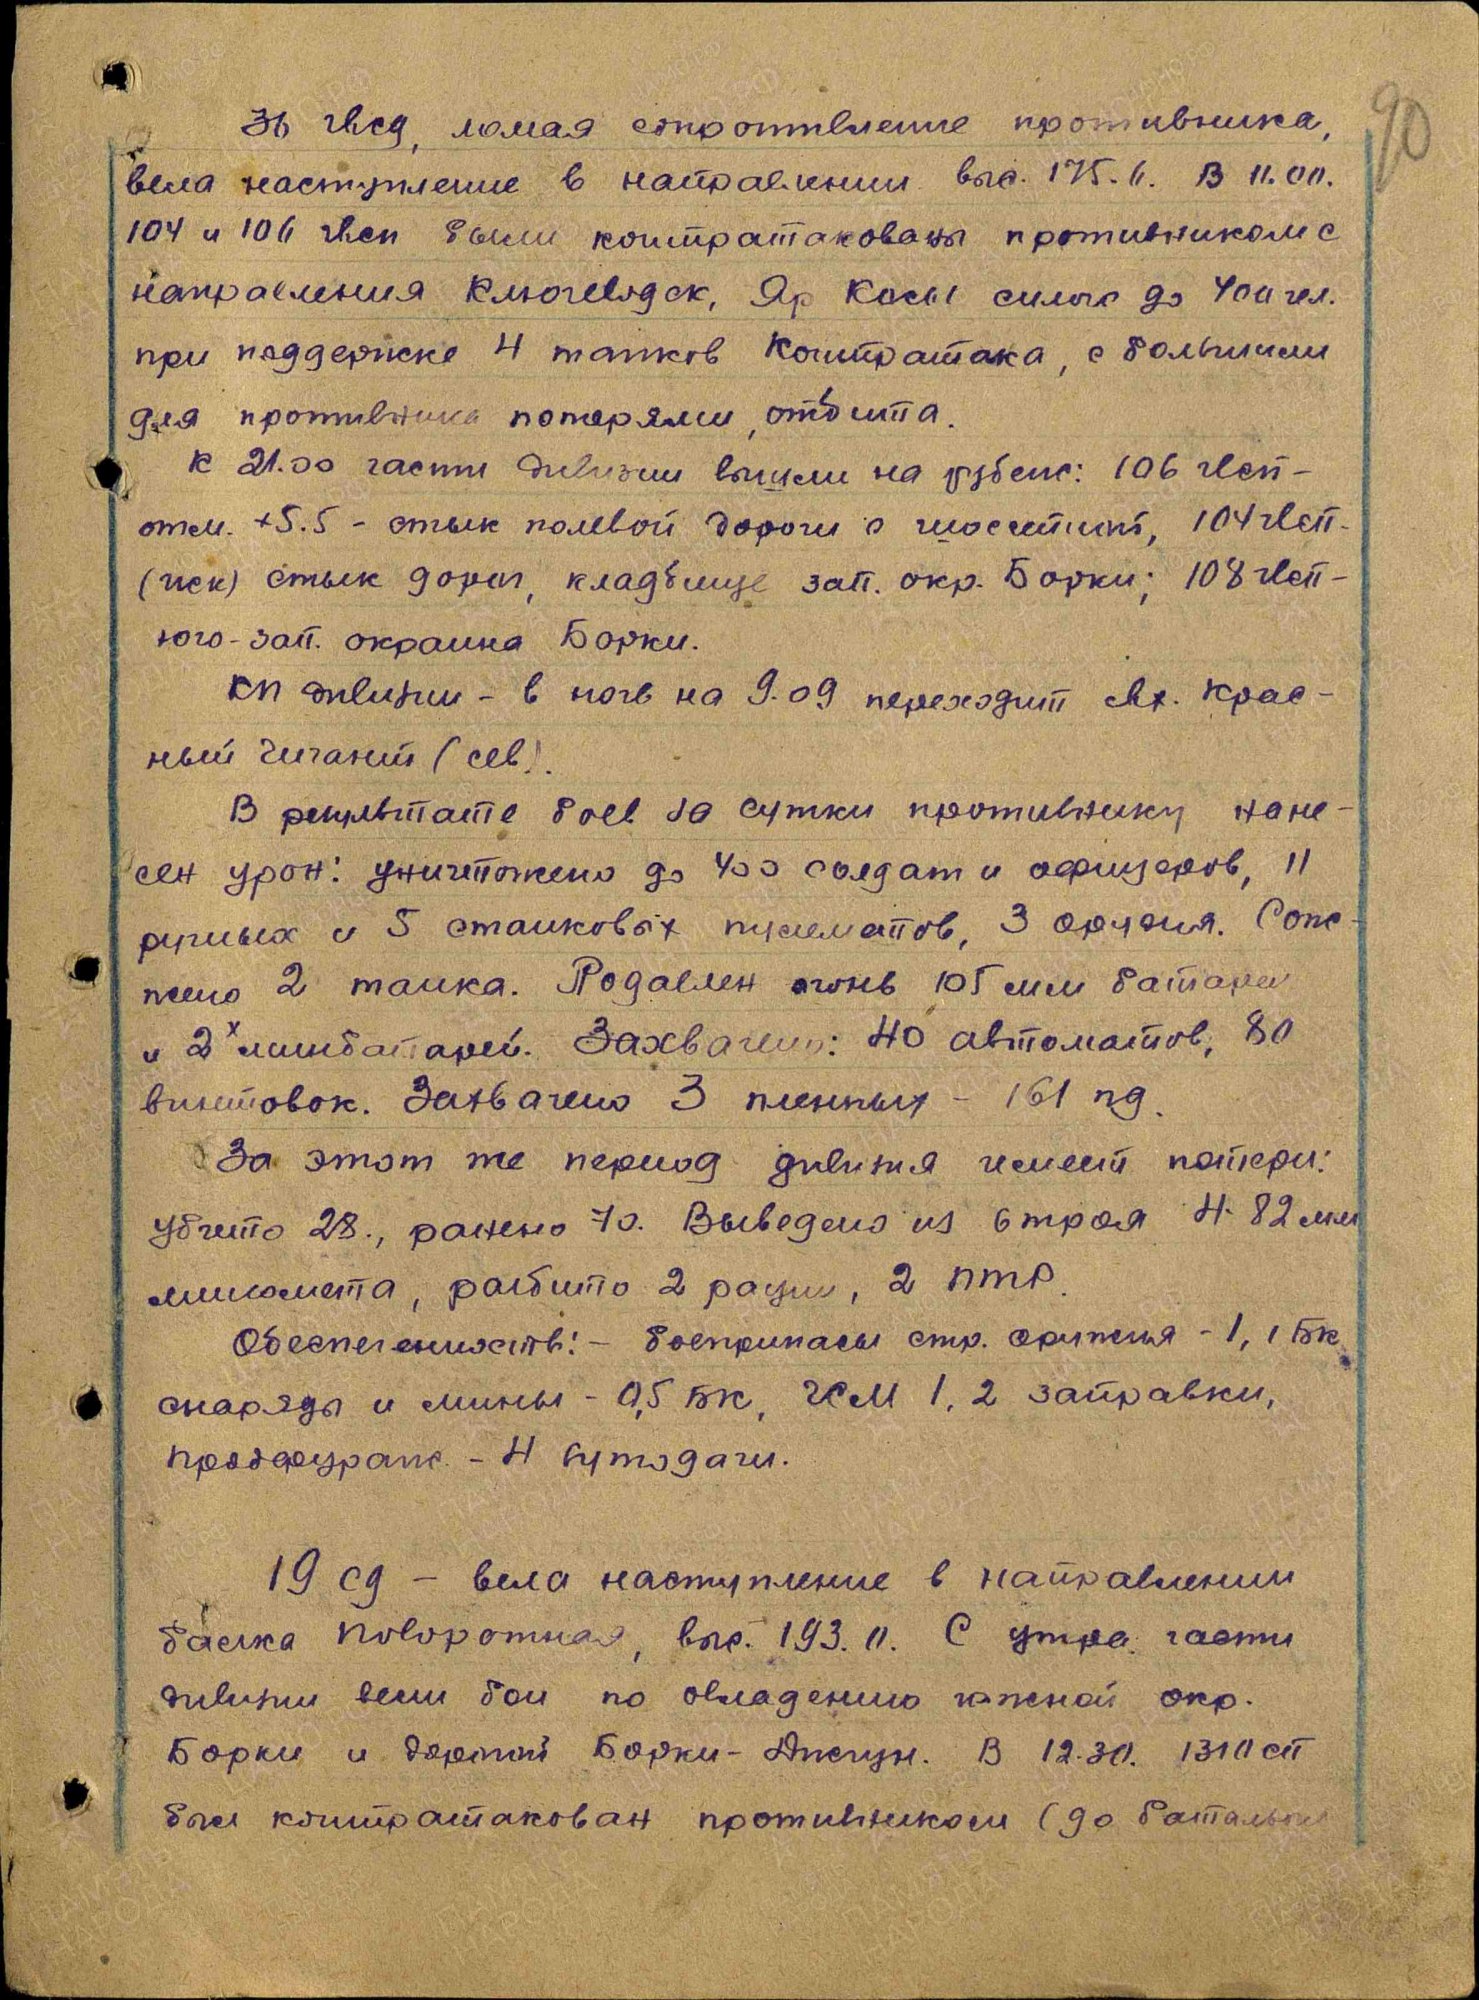 90
36 гвсд, ломая сопротивление противника,
вела наступление в направлении выс. 175.6. В 11.00.
104 и 106 гвсп были контратакованы противником с
направления Ключеводск, Яр Косы силою до 400 чел.
при поддержке 4 танков Контратака, с большими
для противника потерями, отбита.
К 21.00 части дивизии вышли на рубеж: 106 гвсп -
отм. +5.5 - стык полевой дороги с шоссейной, 104 гвсп -
(иск) стык дорог, кладбище зап. окр. Борки; 108 гвсп -
юго-зап. окраина Борки.
КП дивизии - в ночь на 9.09 переходит свх. Крас-
ный Гигант (сев).
В результате боев за сутки противнику нане-
сен урон: уничтожено до 400 солдат и офицеров, 11
ручных и 5 станковых пулеметов, 3 орудия. Сож-
жено 2 танка. Подавлен огонь 105 мм батареи
и 2х минбатарей. Захвачено: 40 автоматов, 80
винтовок. Захвачено 3 пленных - 161 пд.
За этот же период дивизия имеет потери:
убито 28., ранено 70. Выведено из строя 4-82 мм
миномета, разбито 2 рации, 2 ПТР.
Обеспеченность: - боеприпасы стр. оружия - 1,1 БК
снаряды и мины - 0,5 БК, ГСМ 1,2 заправки,
продфураж - 4 сутодачи.
19 сд - вела наступление в направлении
балка Поворотная, выс. 193.0. С утра части
дивизии вели бои по овладению южной окр.
Борки и дорогой Борки - Джгун. В 12.30. 1310 сп
был контратакован противником (до батальона